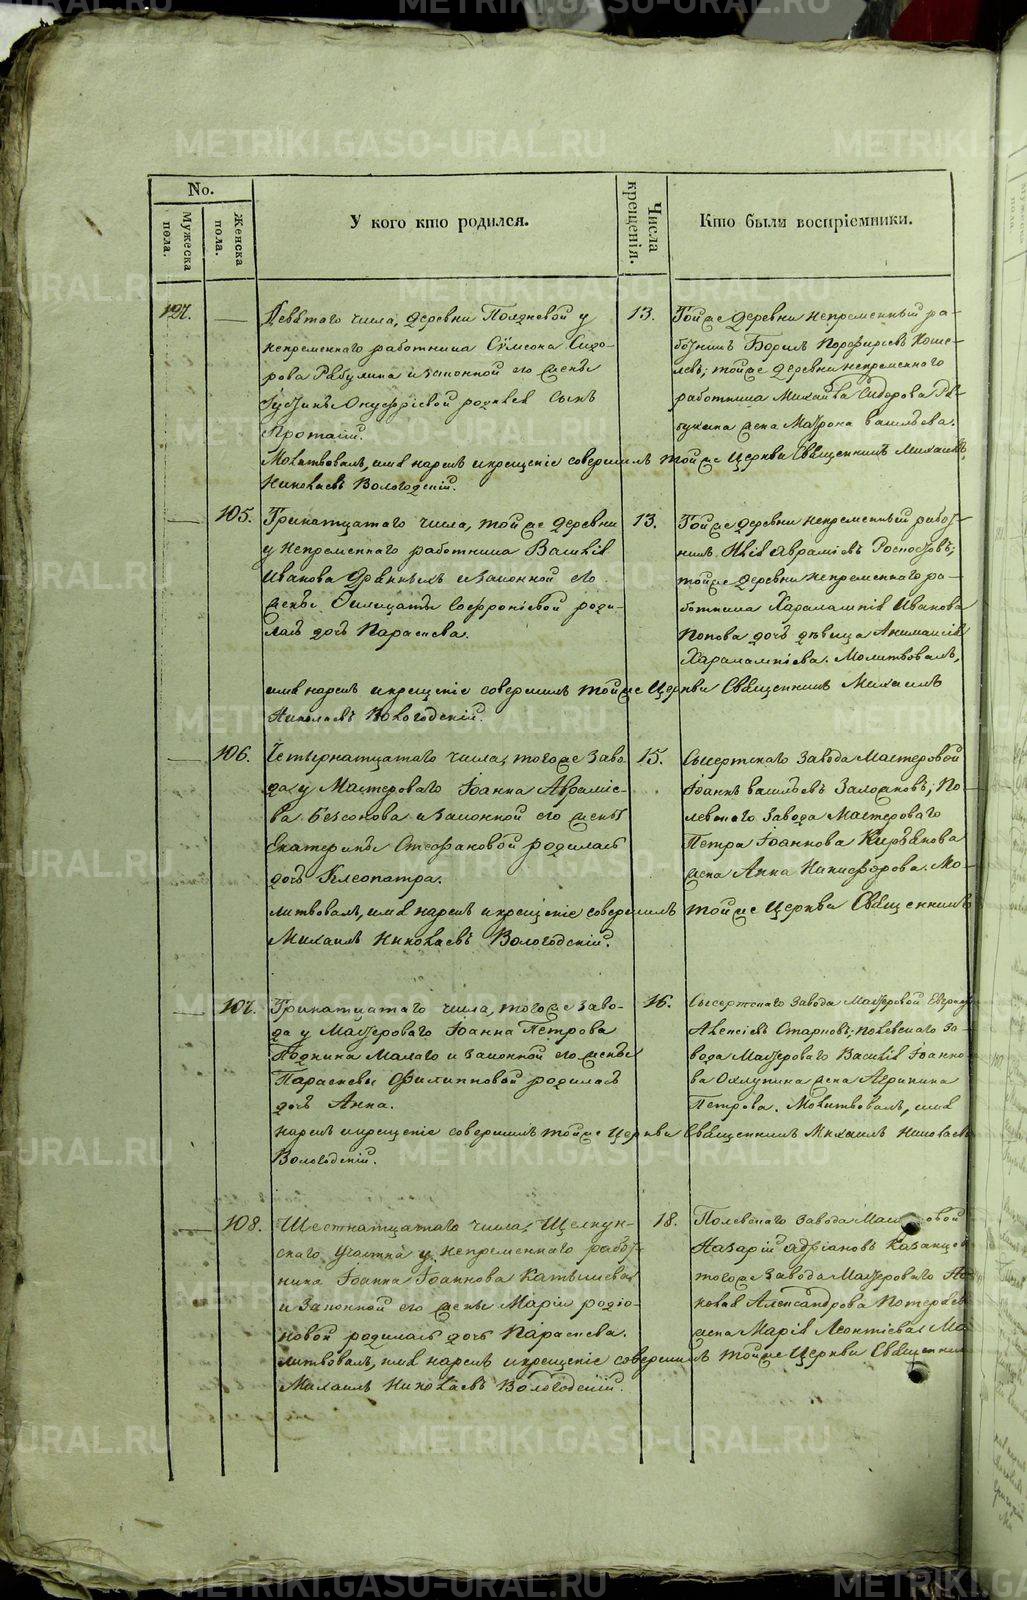 METRIKI.GASO-URAL.RU
No.
Мужеска пола.
Женска пола.
У кого кто родился.
Числа крещенія.
Кто были воспріемники.
127.
Девятаго числа, деревни Полдневой у
непременнаго работника Сѵмеона Сидо-
рова Рябухина и законной его жены
Іустины Онуфріевой родился сынъ
Протасій.
13.
Тойже деревни непременный ра-
ботникъ Борисъ Порфирьевъ Коше-
левъ; тойже деревни непременнаго
работника Михайла Сидорова Ря-
бухина жена Матрона Васильева.
Молитвовалъ, имя нарекъ и крещеніе совершилъ тойже Церкви Священникъ Михаилъ
Николаевъ Вологодскій.
105.
Тринатцатаго числа, тойже деревни
у непременнаго работника Василія
Иванова и законной его
жены Софроніевой роди-
лась дочь Параскева.
13.
Тойже деревни непременный работ-
никъ Авраміевъ
тойже деревни непременнаго ра-
ботника Харалампія Иванова
Попова дочь девица
Харалампіева. Молитвовалъ,
имя нарекъ и крещеніе совершилъ тойже Церкви Священникъ Михаилъ
Николаевъ Вологодскій.
106.
Четырнатцатаго числа, тогоже заво-
да у Мастероваго Іоанна Авраміе-
ва Безсонова и законной его жены
Екатерины Стефановой родилась
дочь Клеопатра.
15.
Сысертскаго завода Мастеровой
Іоаннъ Васильевъ По-
левскаго завода Мастероваго
Петра Іоаннова Кирьянова
жена Анна Никифорова. Мо-
литвовалъ, имя нарекъ и крещеніе совершилъ тойже Церкви Священникъ
Михаилъ Николаевъ Вологодскій.
107.
Тринатцатаго числа, тогоже заво-
да у Мастероваго Іоанна Петрова
Малаго и законной его жены
Параскевы Филипповой родилась
дочь Анна.
16.
Сысертскаго завода Мастеровой
Алексіевъ Старковъ; Полевскаго за-
вода Мастероваго Василія Іоанно-
ва Охлупина жена Агрипина
Петрова. Молитвовалъ, имя
нарекъ и крещеніе совершилъ тойже Церкви Священникъ Михаилъ Николаевъ
Вологодскій.
108.
Шестнатцатаго числа, Щелкун-
скаго участка у непременнаго работ-
ника Іоанна Іоаннова Катышева
и законной его жены Маріи Родіо-
новой родилась дочь Параскева.
18.
Полевскаго завода Мастеровой
Назарій Адріановъ Казанцев
тогоже завода Мастероваго Я-
кова Александрова Потеряева
жена Марія Леонтіева. Мо-
литвовалъ, имя нарекъ и крещеніе совершилъ тойже Церкви Священникъ
Михаилъ Николаевъ Вологодскій.